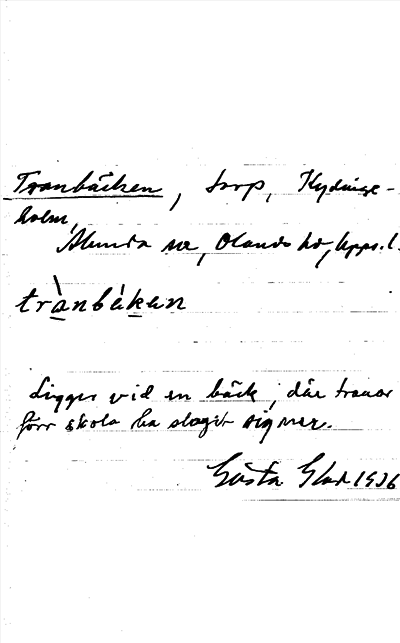 Tranbäcken, torp, Kydinge-
holm,
Alunda sn, Olands hd, Upps. l.
trànbäkɘn
Ligger vid en bäck, där tranor
förr skola ha slagit sig ner.
Gösta Glad 1936